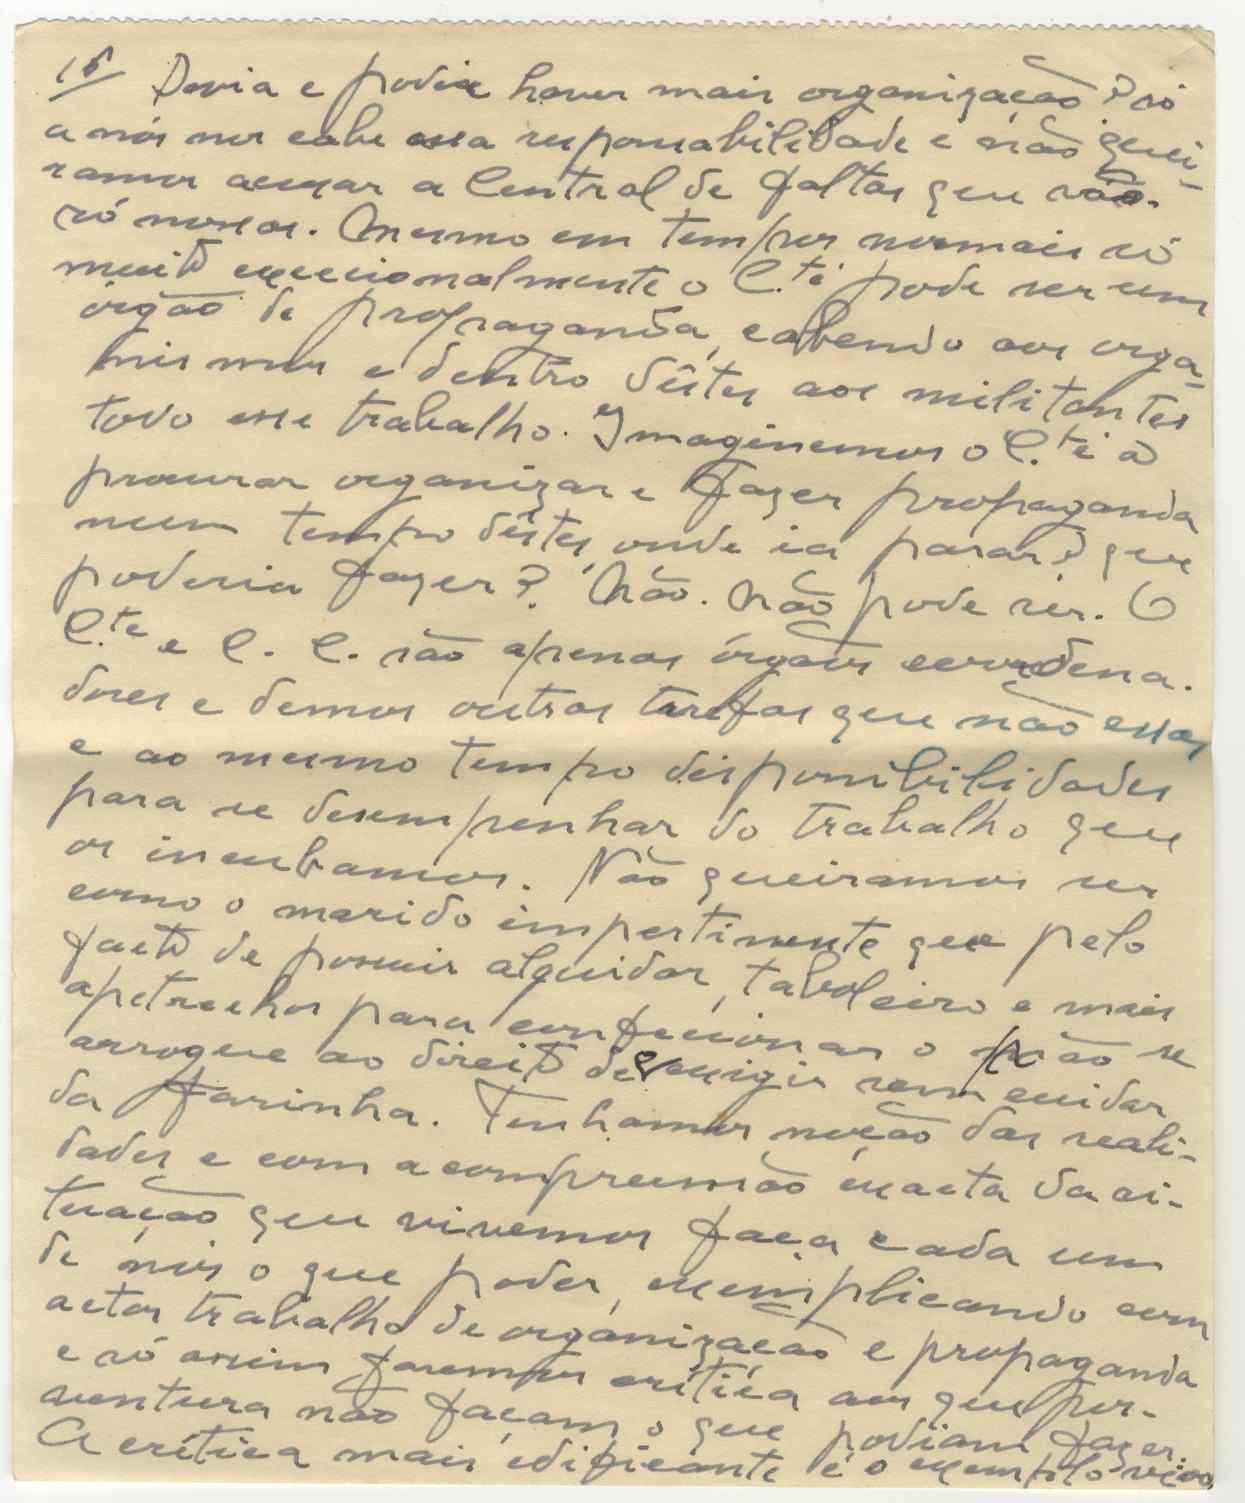 15 Devia e podia haver mais organização? só
a nós nos cabe essa responsabilidade e não quei-
ramos acusar a Central de faltas que são.
só nossas. Mesmo em tempos normais só
muito excecionalmente o C.té pode ser um
órgão de propaganda, cabendo aos orga-
nismos e dentro dêstes aos militantes
todo esse trabalho. Imaginemos o C.té a
procurar organizar e fazer propaganda
num tempo dêstes, onde ia parar? que
poderia fazer? Não. Não pode ser. O
C.te e C. C. são apenas órgãos coordena.
dores e demos outras tarefas que não essas
e ao mesmo tempo disponibilidades
para se desempenhar do trabalho que
os incubamos. Não queiramos ser
como o marido impertinente que pelo
facto de possuir alguidar, taboleiro e mais
apetrechos para confecionar o pão se
arrogue ao direito de exigir sem cuidar
da farinha. Tenhamos noção das reali-
dades e com a compreensão exacta da si-
tuação que vivemos faça cada um
de nós o que poder, exemplicando com
actos trabalho de organização e propaganda
e só assim faremos crítica aos que por-
ventura não façam o que podiam fazer.
A crítica mais edificante é o exemplo vivo,